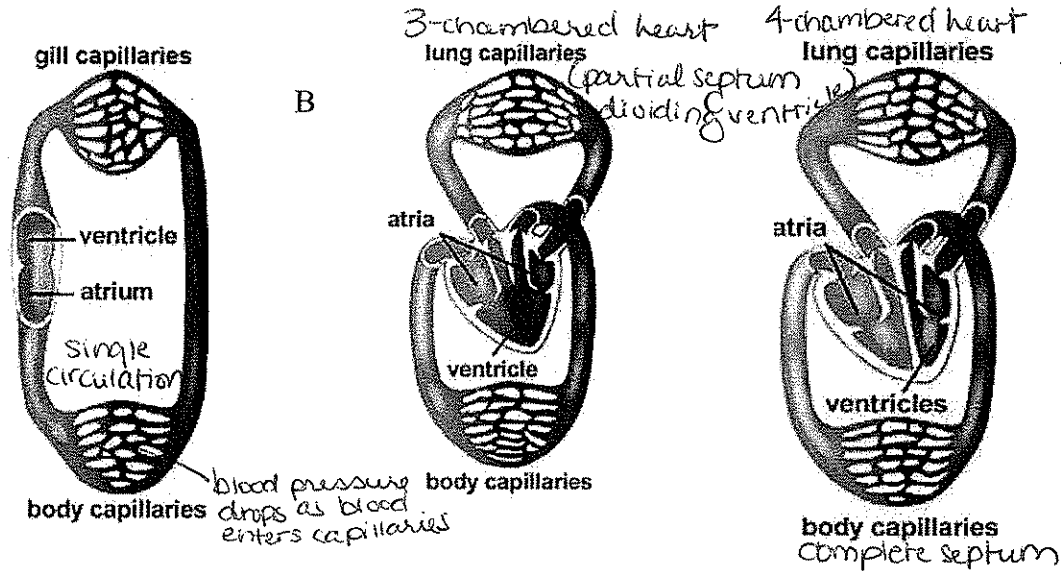 gill capillaries
ventricle
atrium
single
circulation
body capillaries
blood pressure
drops as blood
enters capillaries
B
3-chambered heart
lung capillaries
(partial septum
dividing ventricle)
atria
ventricle
body capillaries
4-chambered heart
lung capillaries
atria
ventricles
body capillaries
complete septum